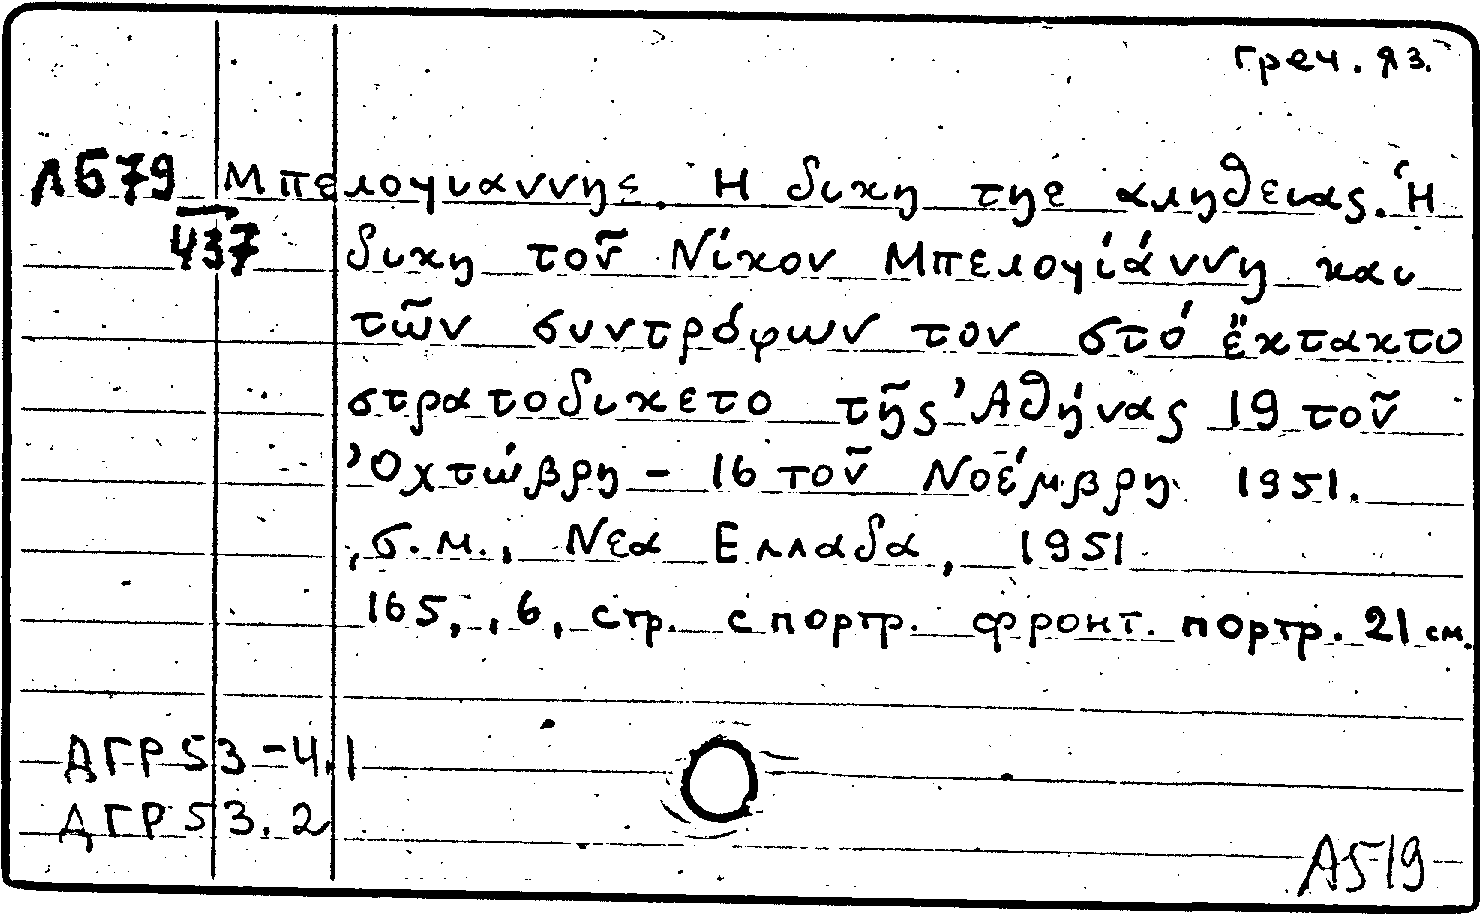 греч. яз.
Л679 Μπελογιαννης. Η δικη της αληθειας. Ἡ
437 δικη τοῦ Νίκου Μπελογιάννη και
τῶν συντρόφων του στό ἔκτακτο
στρατοδικετο τῆς Ἀθήνας 19 τοῦ
Ὀχτώβρη - 16 τοῦ Νοέμβρη 1951.
, б.м., Νεα Ελλαδα, 1951
165, , 6, стр. с портр. фронт. портр. 21 см.
ДГР53-4.1
ДГР53.2
А519